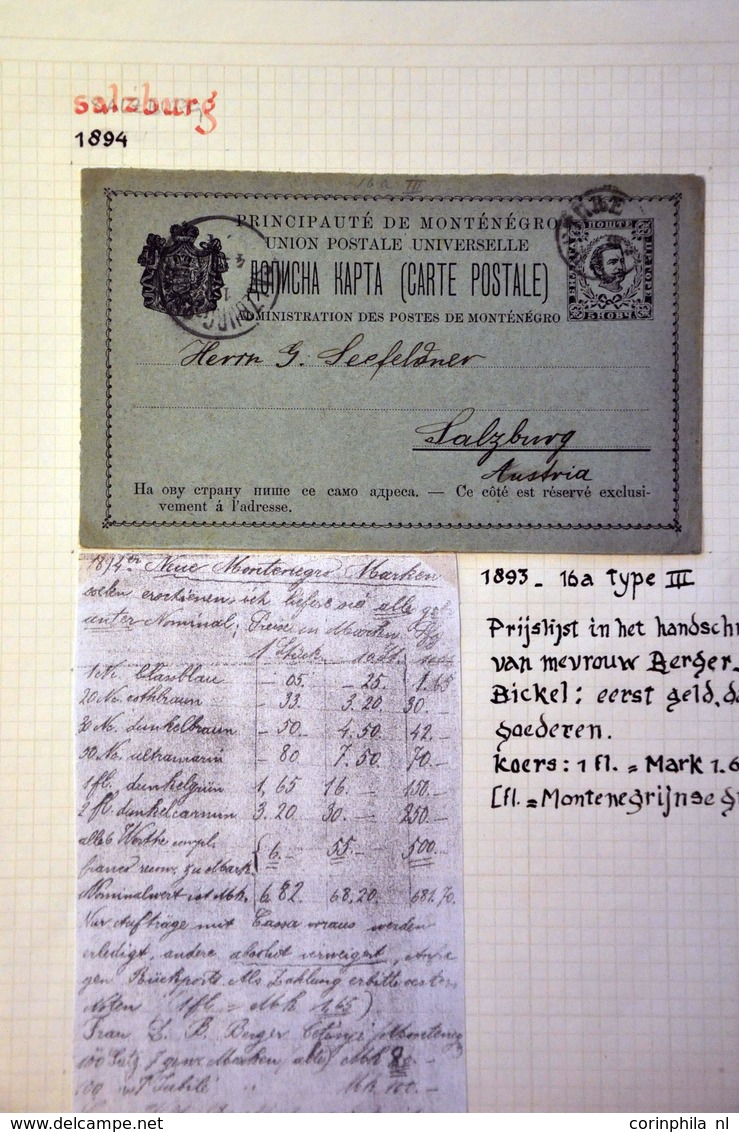 salzburg
1894
16a III
PRINCIPAUTÉ DE MONTÉNÉGRO
UNION POSTALE UNIVERSELLE
ДОПИСНА КАРТА (CARTE POSTALE)
ADMINISTRATION DES POSTES DE MONTÉNÉGRO
ПОШТЕ
5 НОВЧ.
Herrn G. Seefeldner
Salzburg
Austria
На ову страну пише се само адреса. — Ce côté est réservé exclusi-
vement á l'adresse.
1894er Neue Montenegro Marken
soeben erschienen, ich liefere sie alle
unter Nominal; Preise in Marken
1 Stück 10 St.
1 N. blassblau — 05. — 25. 1.65
20 N. rothbraun — 33. 3.20 30.—
30 N. dunkelbraun — 50. 4.50 42.—
50 N. ultramarin — 80 7.50 70.—
1 fl. dunkelgrün 1,65 16.— 150.—
2 fl. dunkelcarmin 3.20 30.— 250.—
alle 6 Werthe compl.
franco recom. zu Mark. 6.— 55.— 500.—
Nominalwert ist Mk. 6.82 68,20. 681.70.
Nur Aufträge mit Cassa voraus werden
erledigt, andere absolut verweigert,
gen Rückporto. Als Zahlung erbitte
Noten 1 fl = Mk 1,65)
Frau L. B. Berger Cetinje Montene
100 Satz 7 ganz Marken alle) Mk 80.—
100 " Jubilé " Mk 100.—
1893 - 16a type III
Prijslijst in het handschr
van mevrouw Berger.
Bickel: eerst geld, d
goederen.
koers: 1 fl. = Mark 1.6
[fl. = Montenegrijnse g
corinphila nl